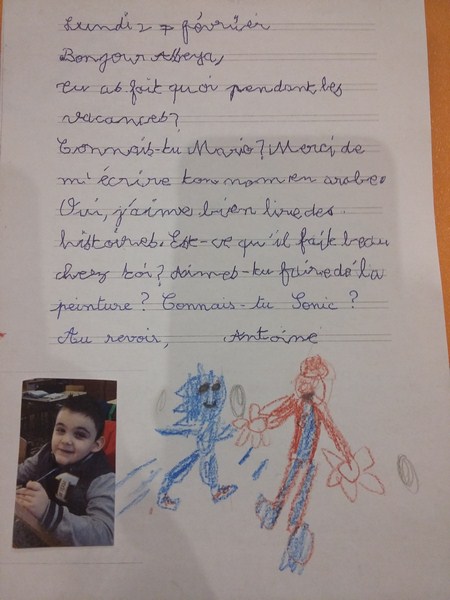 Lundi 27 février
Bonjour Asseya,
Tu as fait quoi pendant les
vacances?
Connais-tu Mario? Merci de
m'écrire ton nom en arabe.
Oui, j'aime bien lire des
histoires. Est-ce qu'il fait beau
chez toi? Aimes-tu faire de la
peinture? Connais-tu Sonic?
Au revoir, Antoine